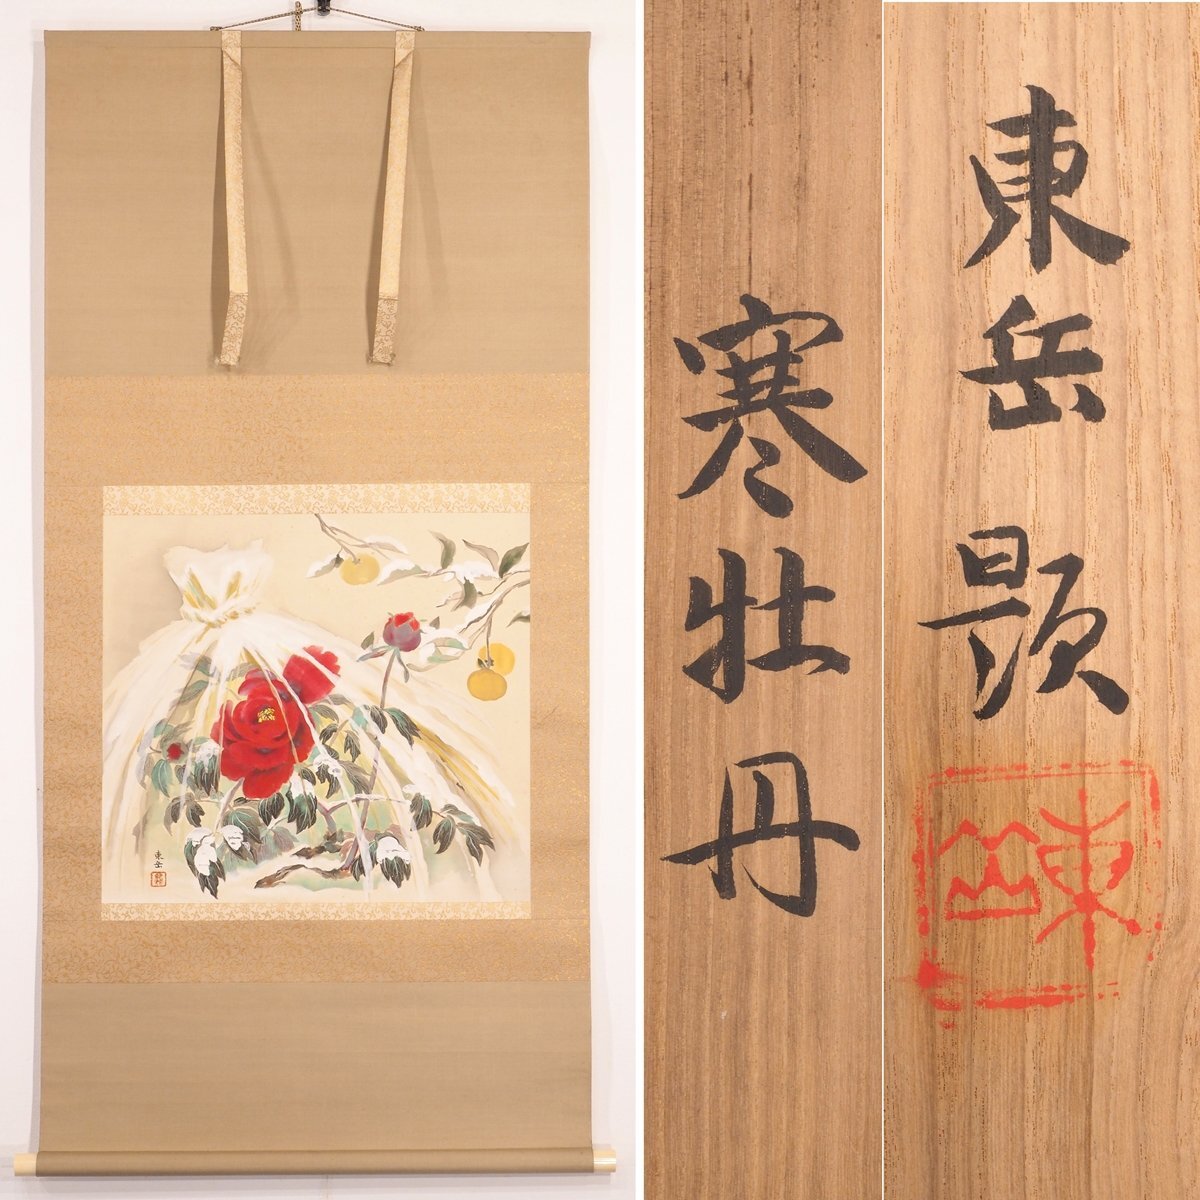 東岳
寒牡丹
東岳題
東岳